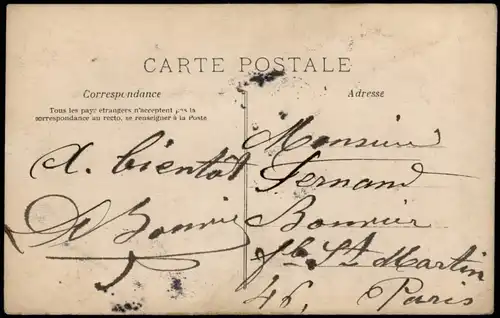 CARTE POSTALE
Correspondance
Tous les pays étrangers n'acceptent pas la
correspondance au recto, se renseigner à la Poste
Adresse
A. bientôt
Monsieur
Fernand
Bonnier
fb St Martin
46,
Paris